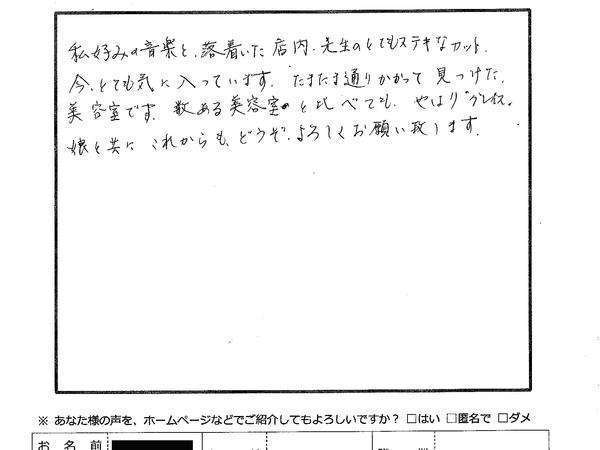 私好みの音楽と、落着いた店内、先生のとてもステキなカット、
今、とても気に入っています。たまたま通りかかって見つけた、
美容室です。数ある美容室と比べても、やはりグレイス。
娘と共にこれからも、どうぞ、よろしくお願い致します。
※ あなた様の声を、ホームページなどでご紹介してもよろしいですか? □はい □匿名で □ダメ
お 名 前